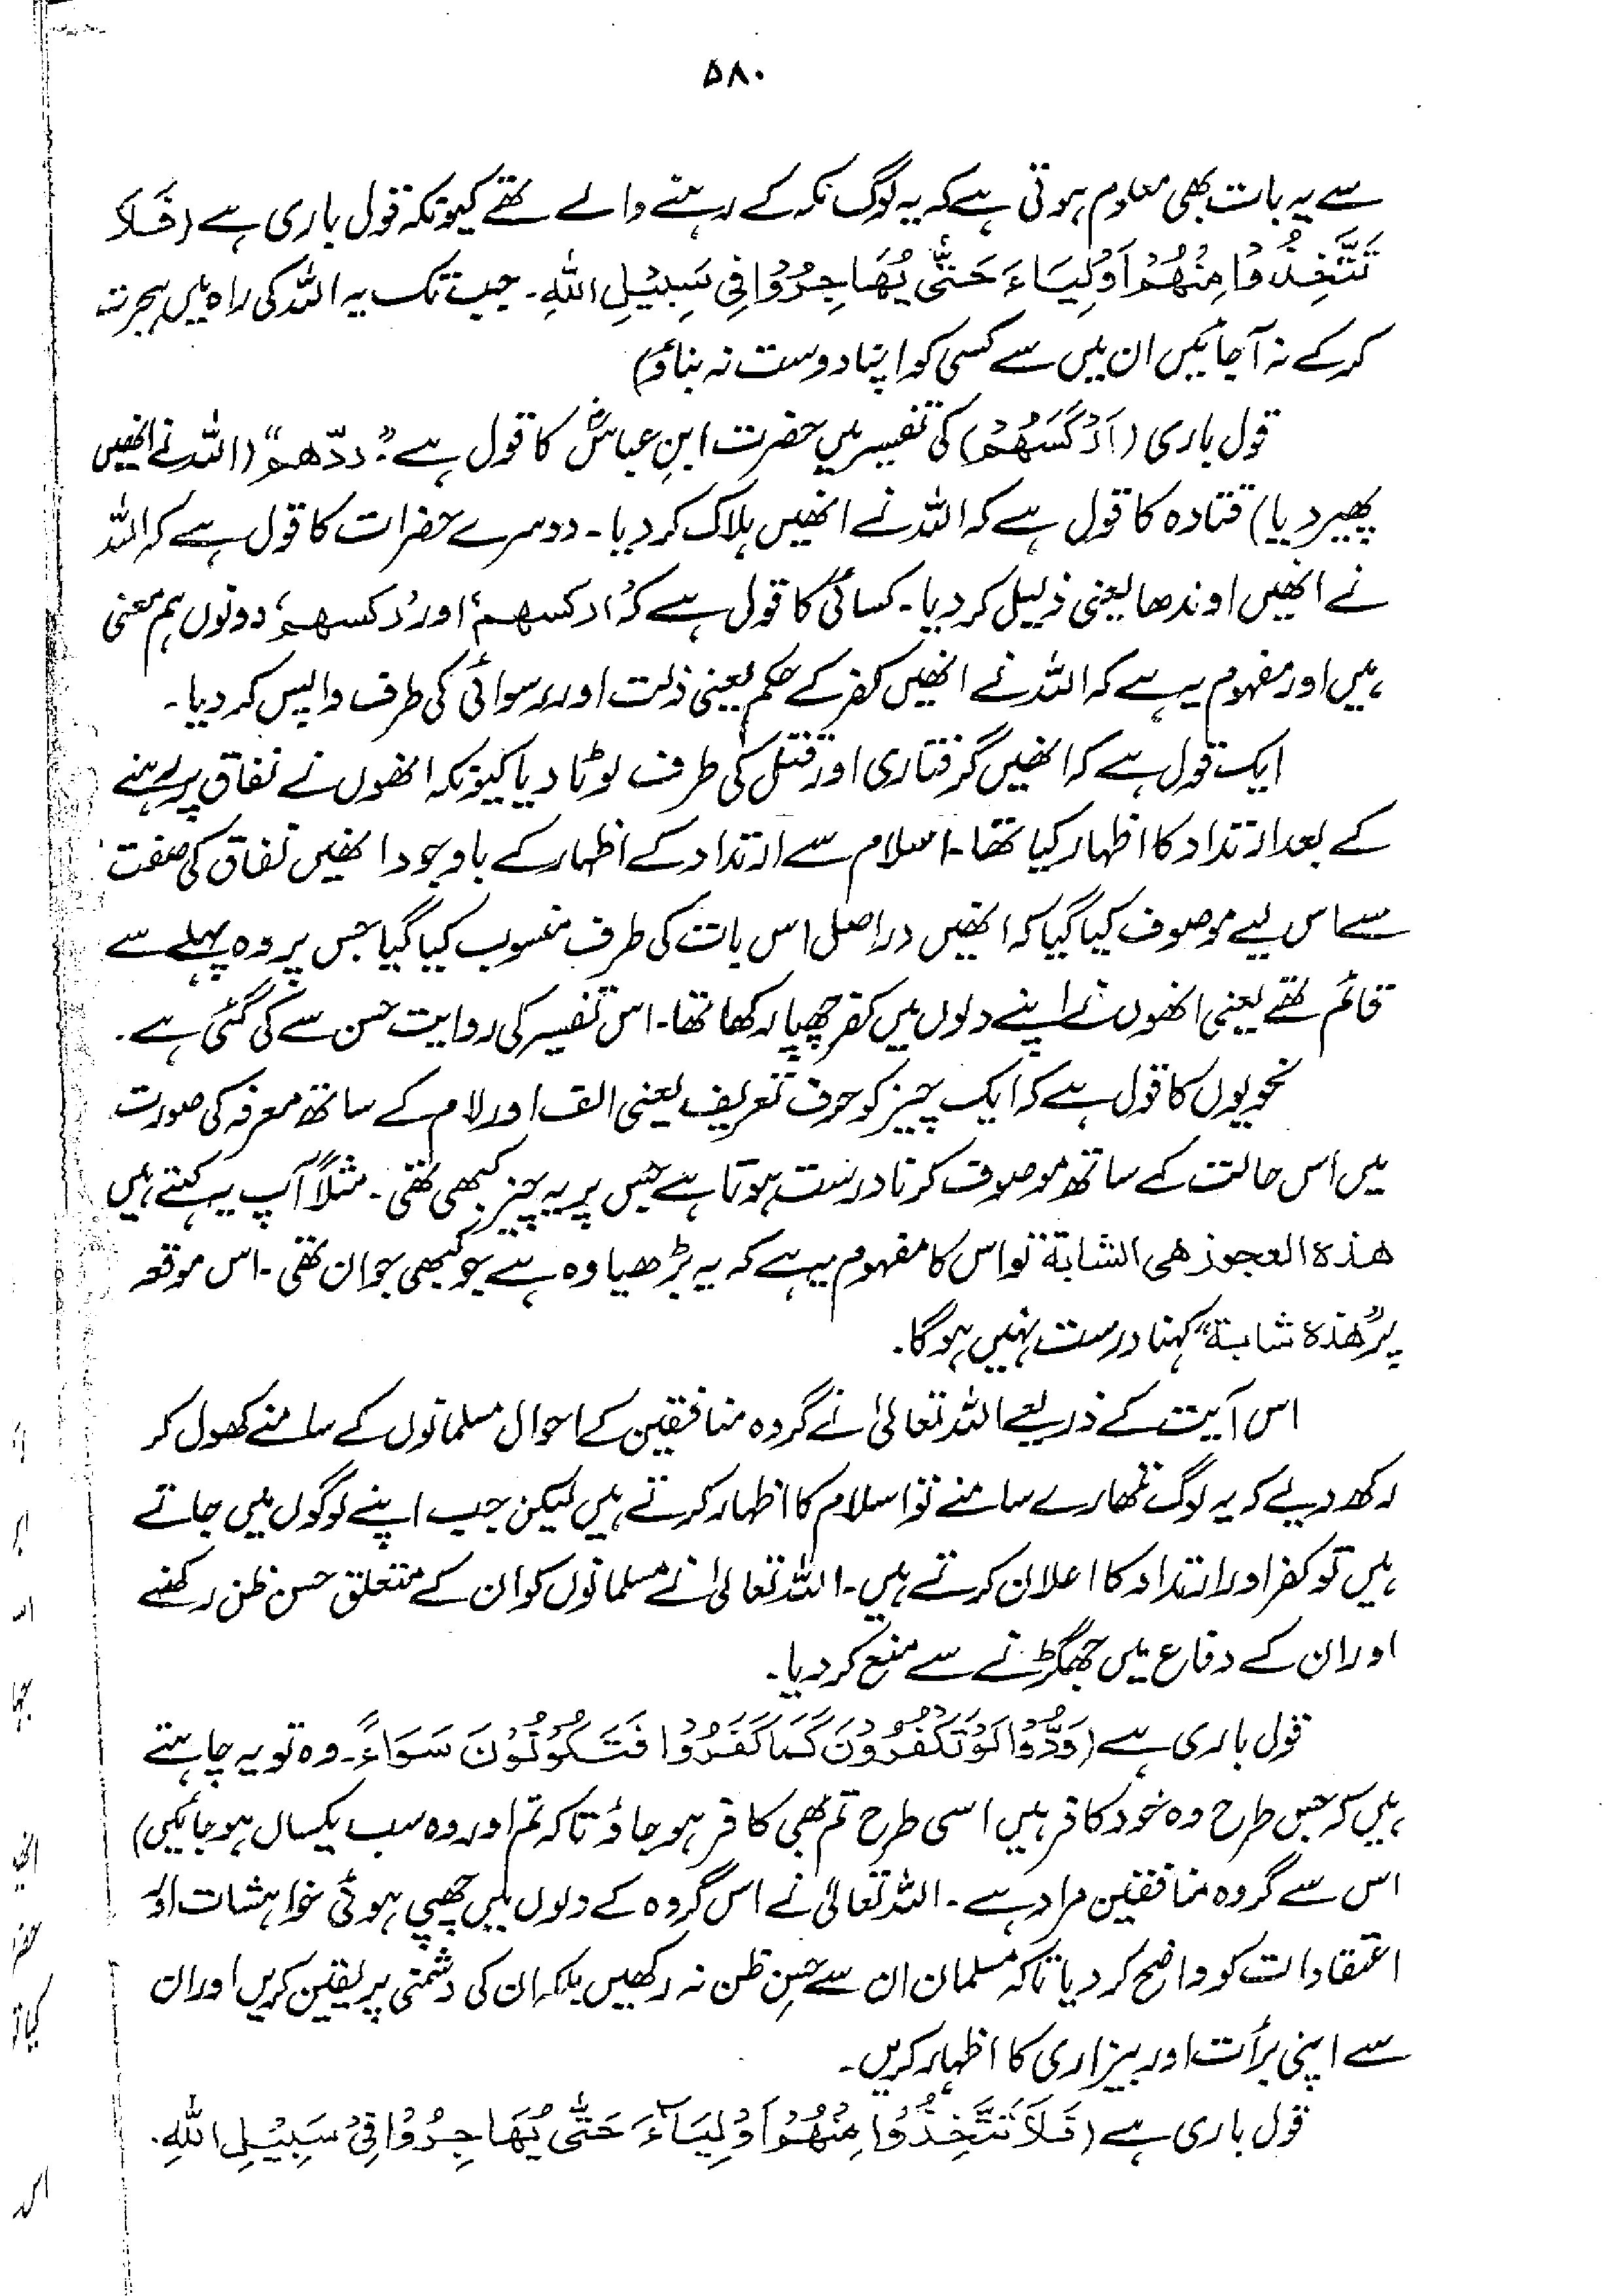 ۵۸۰
سے یہ بات بھی معلوم ہوتی ہے کہ یہ لوگ مکہ کے رہنے والے تھے کیونکہ قول باری ہے (فَلَا
تَتَّخِذُوْا مِنْهُمْ اَوْلِيَاءَ حَتّٰى يُهَاجِرُوْا فِى سَبِيْلِ اللهِ۔ جب تک یہ اللہ کی راہ میں ہجرت
کرکے نہ آجائیں ان میں سے کسی کو اپنا دوست نہ بناؤ)
قول باری (اَرْكَسَهُمْ) کی تفسیر میں حضرت ابن عباسؓ کا قول ہے "ردّھم" (اللہ نے انھیں
پھیر دیا) قتادہ کا قول ہے کہ اللہ نے انھیں ہلاک کر دیا۔ دوسرے حضرات کا قول ہے کہ اللہ
نے انھیں اوندھا یعنی ذلیل کر دیا۔ کسائی کا قول ہے کہ 'ارکسھم' اور 'رکسھم' دونوں ہم معنی
ہیں اور مفہوم یہ ہے کہ اللہ نے انھیں کفر کے حکم یعنی ذلت اور رسوائی کی طرف واپس کر دیا۔
ایک قول ہے کہ انھیں گرفتاری اور قتل کی طرف لوٹا دیا کیونکہ انھوں نے نفاق پر رہنے
کے بعد ارتداد کا اظہار کیا تھا۔ اسلام سے ارتداد کے اظہار کے باوجود انھیں نفاق کی صفت
سے اس لیے موصوف کیا گیا کہ انھیں دراصل اس بات کی طرف منسوب کیا گیا جس پر وہ پہلے سے
قائم تھے یعنی انھوں نے اپنے دلوں میں کفر چھپا رکھا تھا۔ اس تفسیر کی روایت حسن سے کی گئی ہے۔
نحویوں کا قول ہے کہ ایک چیز کو حرف تعریف یعنی الف اور لام کے ساتھ معرفہ کی صورت
میں اُس حالت کے ساتھ موصوف کرنا درست ہوتا ہے جس پر یہ چیز کبھی تھی۔ مثلاً آپ یہ کہتے ہیں
ھذہ العجوز ھی الشابة تو اس کا مفہوم یہ ہے کہ یہ بڑھیا وہ ہے جو کبھی جوان تھی۔ اس موقعہ
پر "ھذہ شابة" کہنا درست نہیں ہوگا۔
اس آیت کے ذریعے اللہ تعالیٰ نے گروہ منافقین کے احوال مسلمانوں کے سامنے کھول کر
رکھ دیے کہ یہ لوگ تمھارے سامنے تو اسلام کا اظہار کرتے ہیں لیکن جب اپنے لوگوں میں جاتے
ہیں تو کفر اور ارتداد کا اعلان کرتے ہیں۔ اللہ تعالیٰ نے مسلمانوں کو ان کے متعلق حسن ظن رکھنے
اور ان کے دفاع میں جھگڑنے سے منع کر دیا۔
قول باری ہے (وَدُّوْا لَوْ تَكْفُرُوْنَ كَمَا كَفَرُوْا فَتَكُوْنُوْنَ سَوَاءً۔ وہ تو یہ چاہتے
ہیں کہ جس طرح وہ خود کافر ہیں اسی طرح تم بھی کافر ہو جاؤ تاکہ تم اور وہ سب یکساں ہو جائیں)
اس سے گروہ منافقین مراد ہے۔ اللہ تعالیٰ نے اس گروہ کے دلوں میں چھپی ہوئی خواہشات اور
اعتقادات کو واضح کر دیا تاکہ مسلمان ان سے حسنِ ظن نہ رکھیں بلکہ ان کی دشمنی پر یقین کریں اور ان
سے اپنی برأت اور بیزاری کا اظہار کریں۔
قول باری ہے (فَلَا تَتَّخِذُوْا مِنْهُمْ اَوْلِيَآءَ حَتّٰى يُهَاجِرُوْا فِىْ سَبِيْلِ اللهِ۔